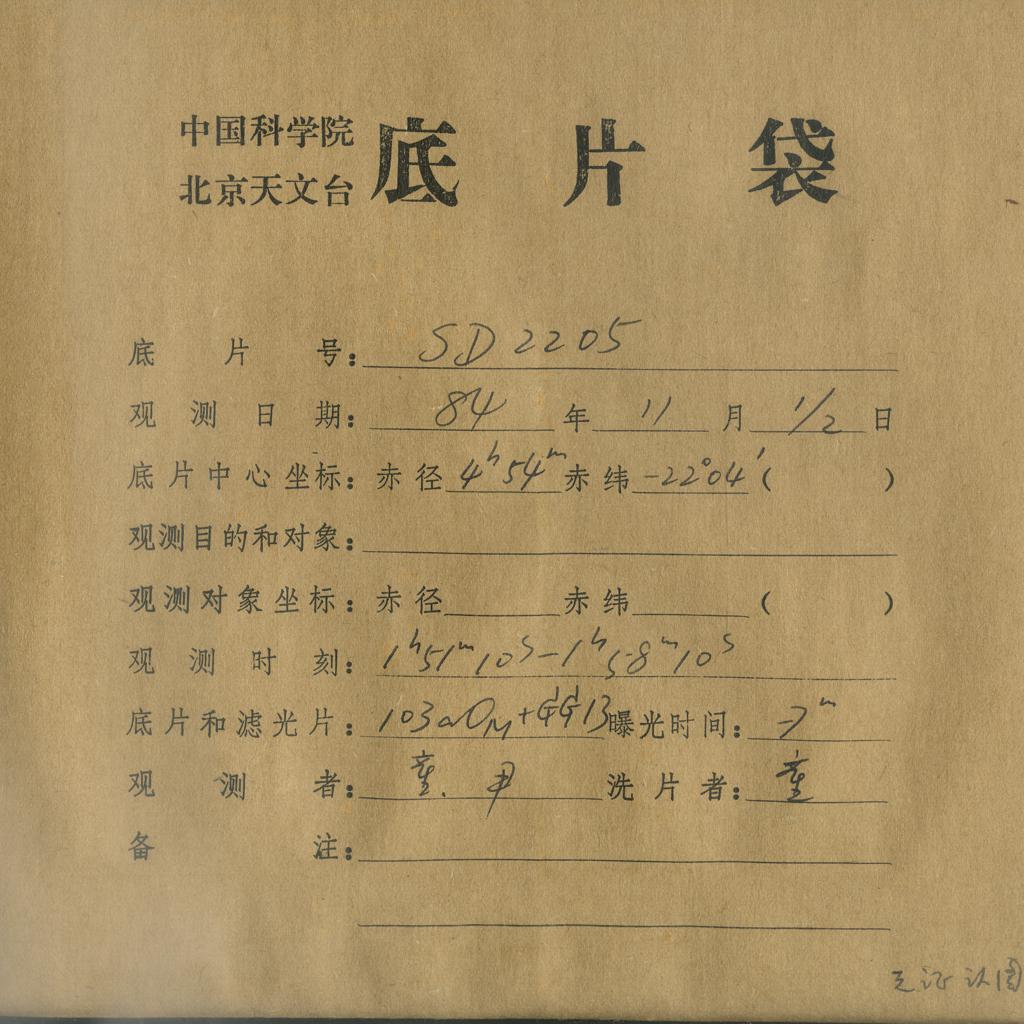 中国科学院
北京天文台
底片袋
底片号: SD2205
观测日期: 84年11月1/2日
底片中心坐标: 赤径 4h54m 赤纬 -22°04′ ( )
观测目的和对象:
观测对象坐标: 赤径 赤纬 ( )
观测时刻: 1h51m10s-1h58m10s
底片和滤光片: 103aOM+GG13 曝光时间: 7m
观测者: 童. 尹 洗片者: 童
备注:
认图